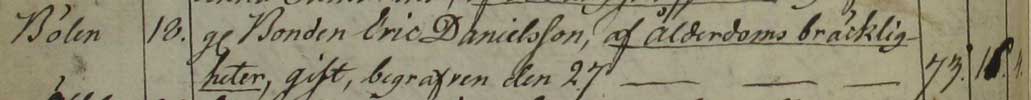 Bölen 18. gl Bonden Eric Danielsson, af ålderdoms bräcklig-
heter, gift, begrafven den 27 — — — 73.